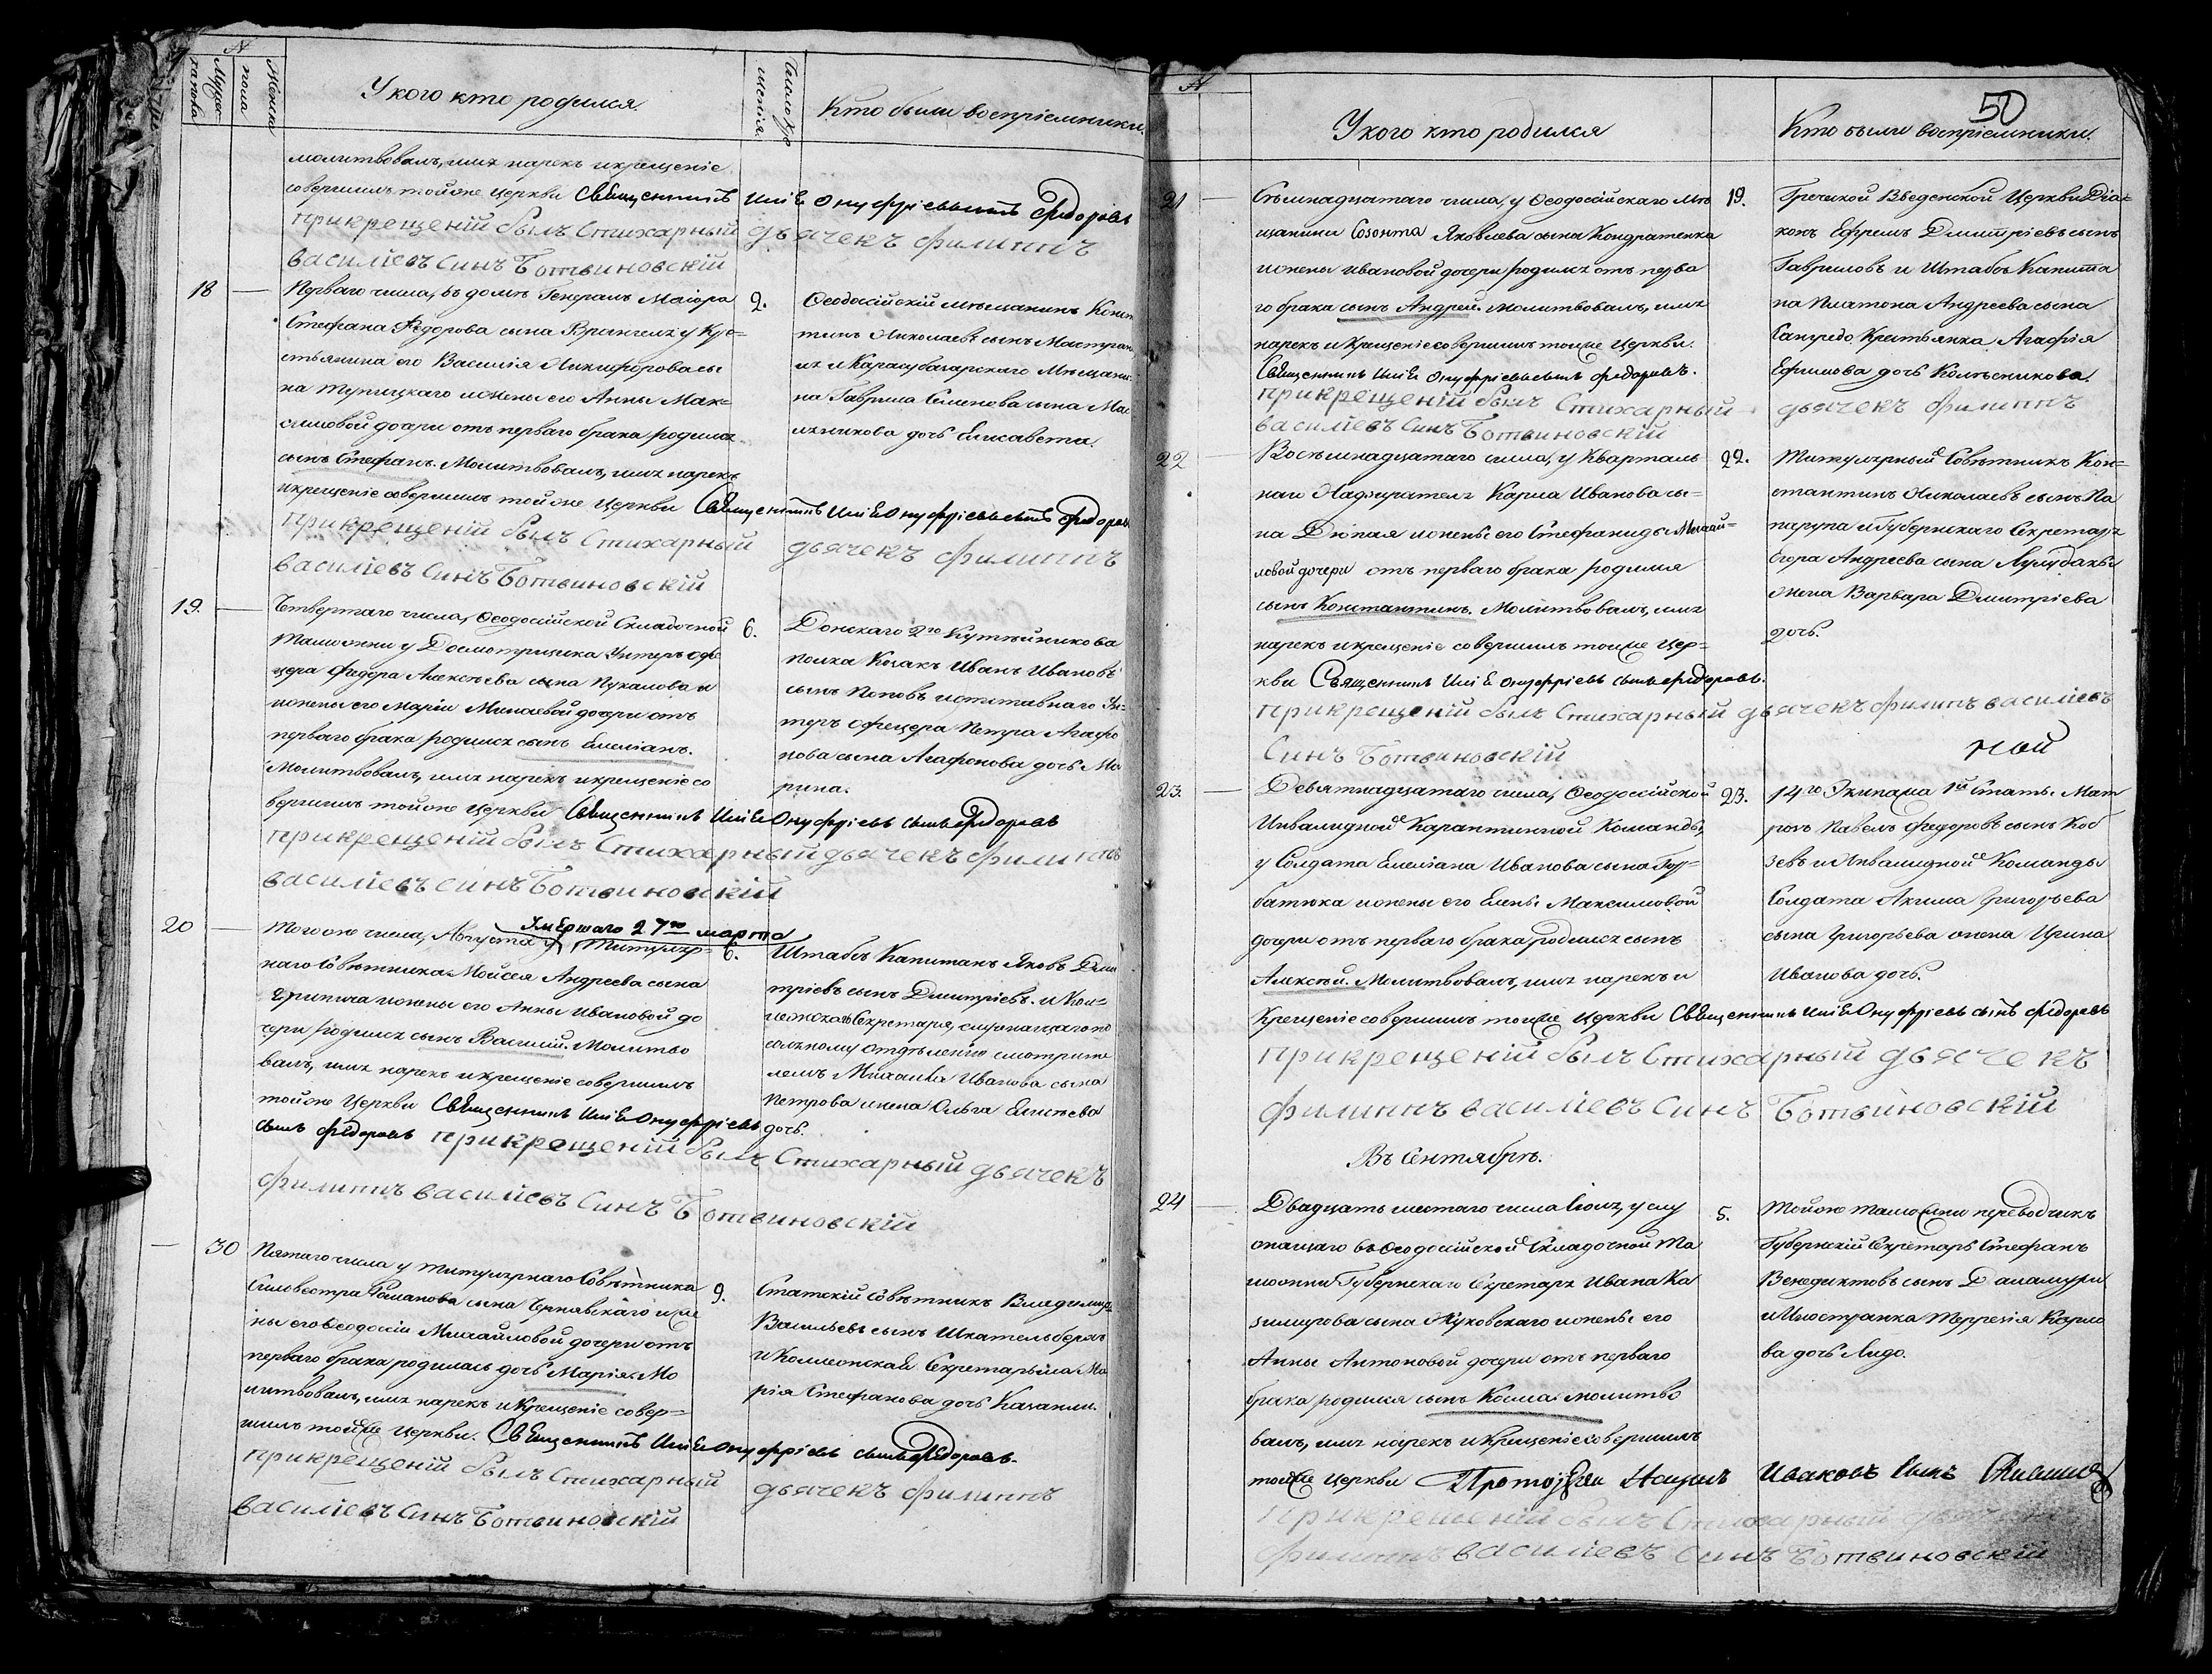 №
Мужес
каго пола
Женска
пола
У кого кто родился.
Число Кре
щенія.
Кто были воспріемники.
молитвовалъ, имя нарекъ и крещеніе
совершилъ тойже Церкви Священникъ Илія Онуфріевъ сынъ Федоровъ
прикрещеній былъ Стихарный дьячекъ Филиппъ
василіевъ Синъ Ботвиновскій
18 —
Перваго числа, въ домѣ Генералъ Маіора
Стефана Федорова сына Врангеля у Кре=
стьянина его Василія Никифорова сы
на Тупицкаго и жены его Анны Мак=
симовой дочери отъ перваго брака родился
сынъ Стефанъ. Молитвовалъ, имя нарекъ
и крещеніе совершилъ тойже Церкви Священникъ Илія Онуфріевъ сынъ Федоровъ
прикрещеній былъ Стихарный дьячекъ Филиппъ
василіевъ Синъ Ботвиновскій
9.
Ѳеодосійскій мѣщанинъ Конст
тинъ Николаевъ сынъ
и Карасубазарскаго Мѣщани
на Гаврила Семенова сына Мас
никова дочь Елисавета.
19. —
Четвертаго числа, Ѳеодосійской Складочной
Таможни у Досмотрщика Унтеръ офи
цера Федора Алексѣева сына Пукалова и
жены его Маріи Минаевой дочери отъ
перваго брака родился сынъ Емеліанъ.
Молитвовалъ, имя нарекъ и крещеніе со
вершилъ тойже Церкви Священникъ Илія Онуфріевъ сынъ Федоровъ
прикрещеній былъ Стихарный дьячекъ Филиппъ
василіевъ синъ Ботвиновскій
6.
Донскаго 2го Кутейникова
полка Козакъ Иванъ Ивановъ
сынъ Поповъ и отставнаго Ун=
теръ Офицера Петра Агафо
нова сына Агафонова дочь Ма
рина.
20 —
Умершаго 27го марта
Того же числа, Августа у Титуляр=
наго Совѣтника Моисея Андреева сына
и жены его Анны Ивановой до
чери родился сынъ Василій. Молитво
валъ, имя нарекъ и крещеніе совершилъ
тойже Церкви Священникъ Илія Онуфріевъ
сынъ Федоровъ прикрещеній былъ Стихарный дьячекъ
филиппъ василіевъ Синъ Ботвиновскій
6.
Штабсъ Капитанъ Яковъ Дми
тріевъ сынъ Дмитріевъ. и Кол=
лежскаго Секретаря, служащаго по
соляному отдѣленію смотрите
лемъ Михаила Иванова сына
Петрова жена Ольга
дочь.
— 30
Пятаго числа у Титулярнаго Совѣтника
Сильвестра Романова сына Чернявскаго и же
ны его Ѳеодосіи Михайловой дочери отъ
перваго брака родилась дочь Марія. Мо
литвовалъ, имя нарекъ и Крещеніе совер=
шилъ тойже Церкви. Священникъ Илія Онуфріевъ сынъ Федоровъ.
прикрещеній былъ Стихарный дьячекъ филиппъ
василіевъ Синъ Ботвиновскій
9.
Статскій Совѣтникъ Владиміръ
Васильевъ сынъ Шкательбергъ
и Коллежская Секретарьша Ма
рія Стефанова дочь Казанли.
50
№
У кого кто родился
Кто были воспріемники.
21 —
Семнадцатаго числа, у Ѳеодосійскаго мѣ
щанина Созонта Яковлева сына Кондратенка
и жены Ивановой дочери родился отъ перва
го брака сынъ Андрей. Молитвовалъ, имя
нарекъ и Крещеніе совершилъ тойже Церкви.
Священникъ Илія Онуфріевъ сынъ Федоровъ.
прикрещеній былъ Стихарный дьячекъ филиппъ
василіевъ Синъ Ботвиновскій
19.
Греческой Введенской Церкви Діа=
конъ Ефремъ Дмитріевъ сынъ
Гавриловъ и Штабсъ Капита
на Платона Андреева сына
Крестьянка Агафія
Ефимова дочь Колѣсникова.
22 —
Восемнадцатаго числа, у Кварталь
наго Надзирателя Карла Иванова сы=
на Дюпая и жены его Стефаниды Михай=
ловой дочери отъ перваго брака родился
сынъ Константинъ. Молитвовалъ, имя
нарекъ и крещеніе совершилъ тойже Цер=
кви Священникъ Илія Онуфріевъ сынъ Федоровъ.
прикрещеній былъ Стихарный дьячекъ филипъ василіевъ
Синъ Ботвиновскій
22.
Титулярный Совѣтникъ Кон=
стантинъ Николаевъ сынъ Па
парупа и Губернскаго Секретаря
Егора Андреева сына
жена Варвара Дмитріева
дочь.
23. —
Девятнадцатаго числа, Ѳеодосійской
Инвалидной Карантинной Команды,
у Солдата Емеліана Иванова сына Гор=
батюка и жены его Елены Максимовой
дочери отъ перваго брака родился сынъ
Алексѣй. Молитвовалъ, имя нарекъ и
Крещеніе совершилъ тойже Церкви Священникъ Илія Онуфріевъ сынъ Федоровъ
прикрещеній былъ Стихарный дьячекъ
филиппъ василіевъ Синъ Ботвиновскій
23.
ной
14го Экипажа 1й Статьи Мат
розъ Павелъ Федоровъ сынъ Коб
зевъ и Инвалидной Команды
Солдата Акима Григорьева
сына Григорьева жена Ирина
Иванова дочь.
Въ Сентябрѣ.
24 —
Двадцать шестаго числа Іюля, у слу
жащаго въ Ѳеодосійской Складочной Та
можни Губернскаго Секретаря Ивана Ка
зимирова сына Жуковскаго и жены его
Анны Антоновой дочери отъ перваго
брака родился сынъ Косма. молитво
валъ, имя нарекъ и Крещеніе совершилъ
тойже Церкви Протоіерей Ивановъ сынъ
прикрещеній былъ Стихарный дьячекъ
филиппъ василіевъ Синъ Ботвиновскій
5.
Тойже таможни переводчикъ
Губернскій Секретарь Стефанъ
Венедиктовъ сынъ Даламури
и Иностранка Терезія Карло
ва дочь Лидо.